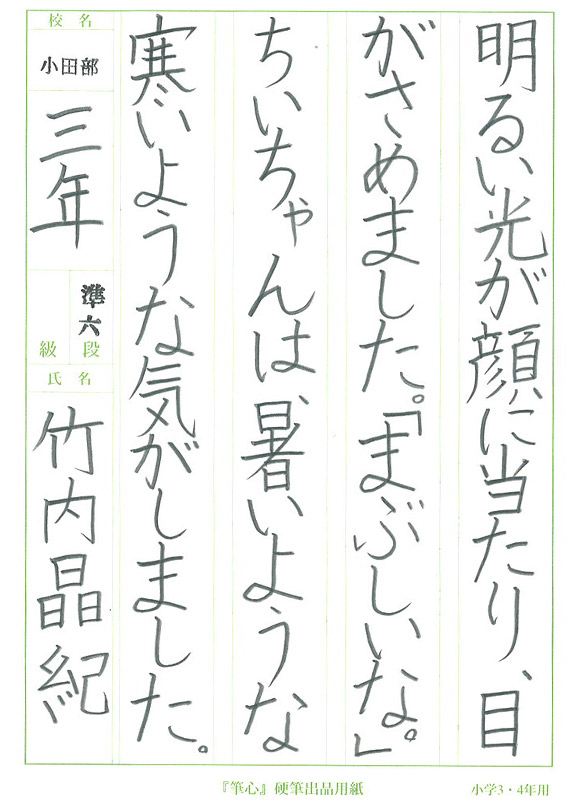 明るい光が顔に当たり、目
がさめました。「まぶしいな。」
ちいちゃんは、暑いような
寒いような気がしました。
校名
小田部
三年
準六
級 段
氏名
竹内晶紀
『筆心』硬筆出品用紙
小学3・4年用